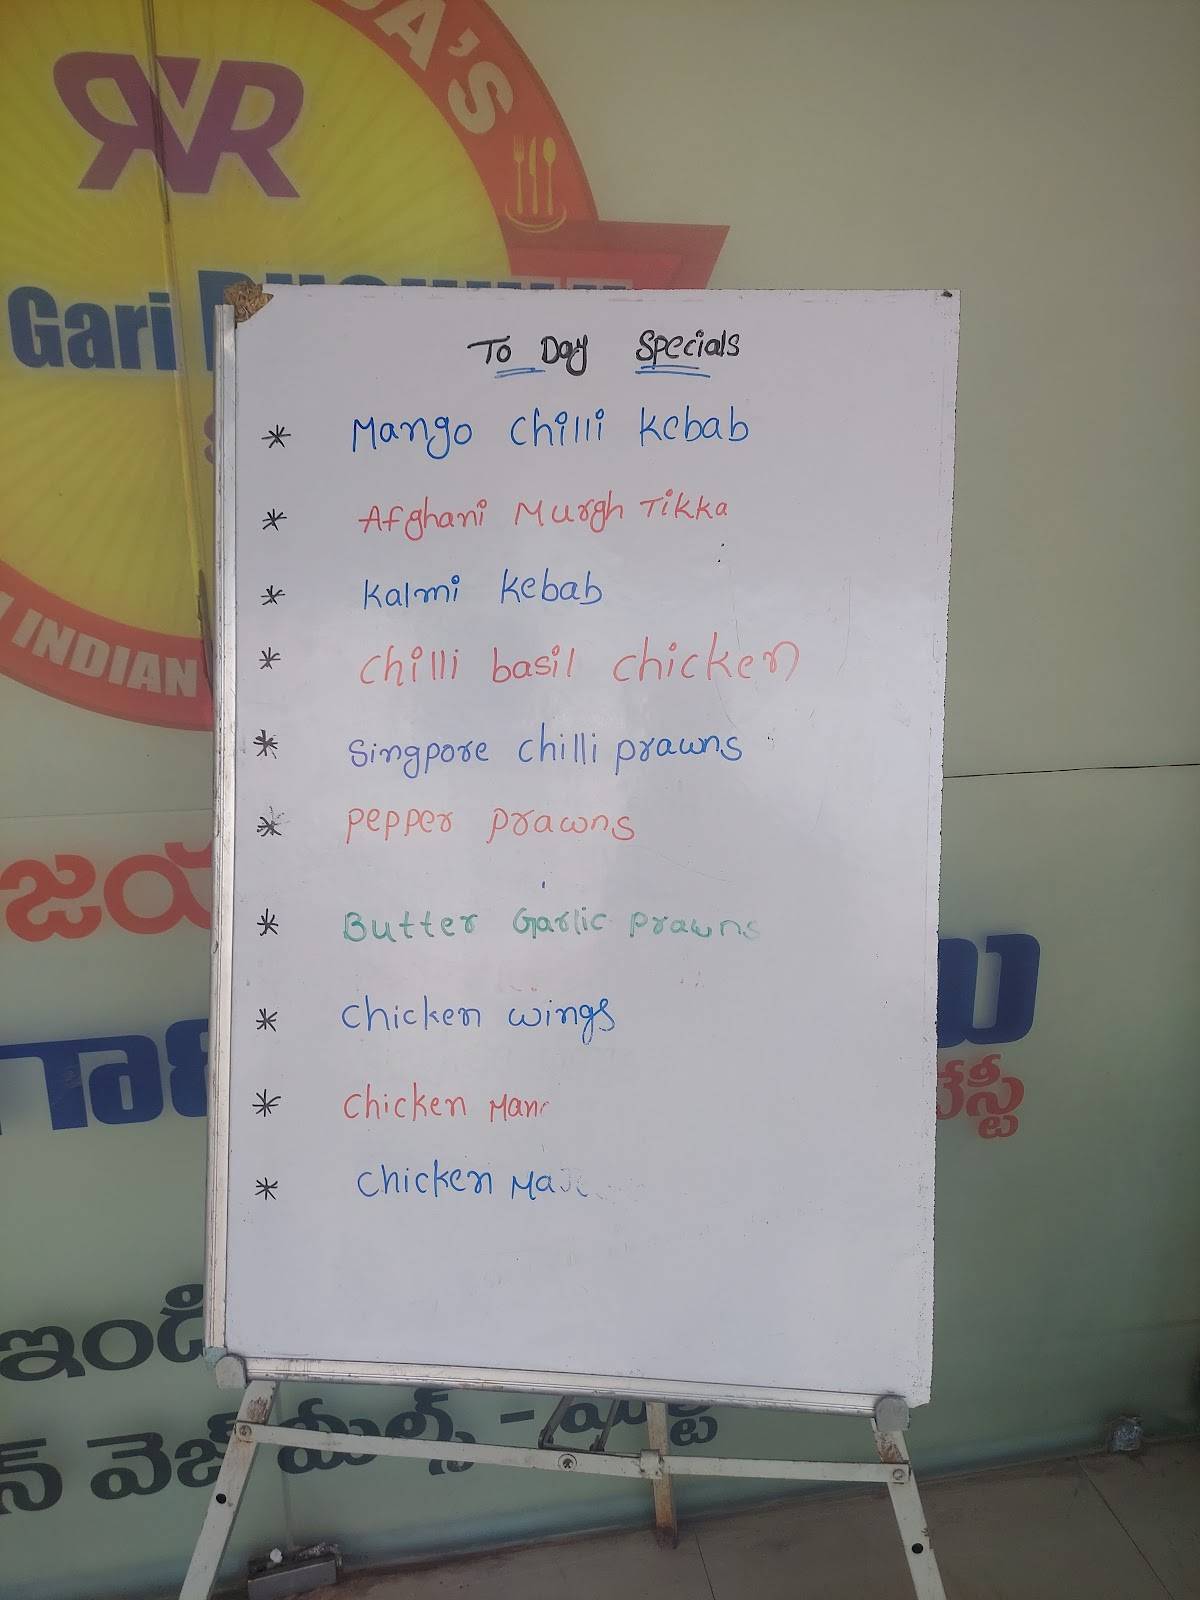 DA'S
RVR
Gari
INDIAN
To Day Specials
* Mango chilli kebab
* Afghani Murgh Tikka
* Kalmi kebab
* chilli basil chicken
* Singpore chilli prawns
* Pepper prawns
* Butter Garlic prawns
* Chicken wings
* Chicken
* Chicken
వెజ్ మీల్స్ -